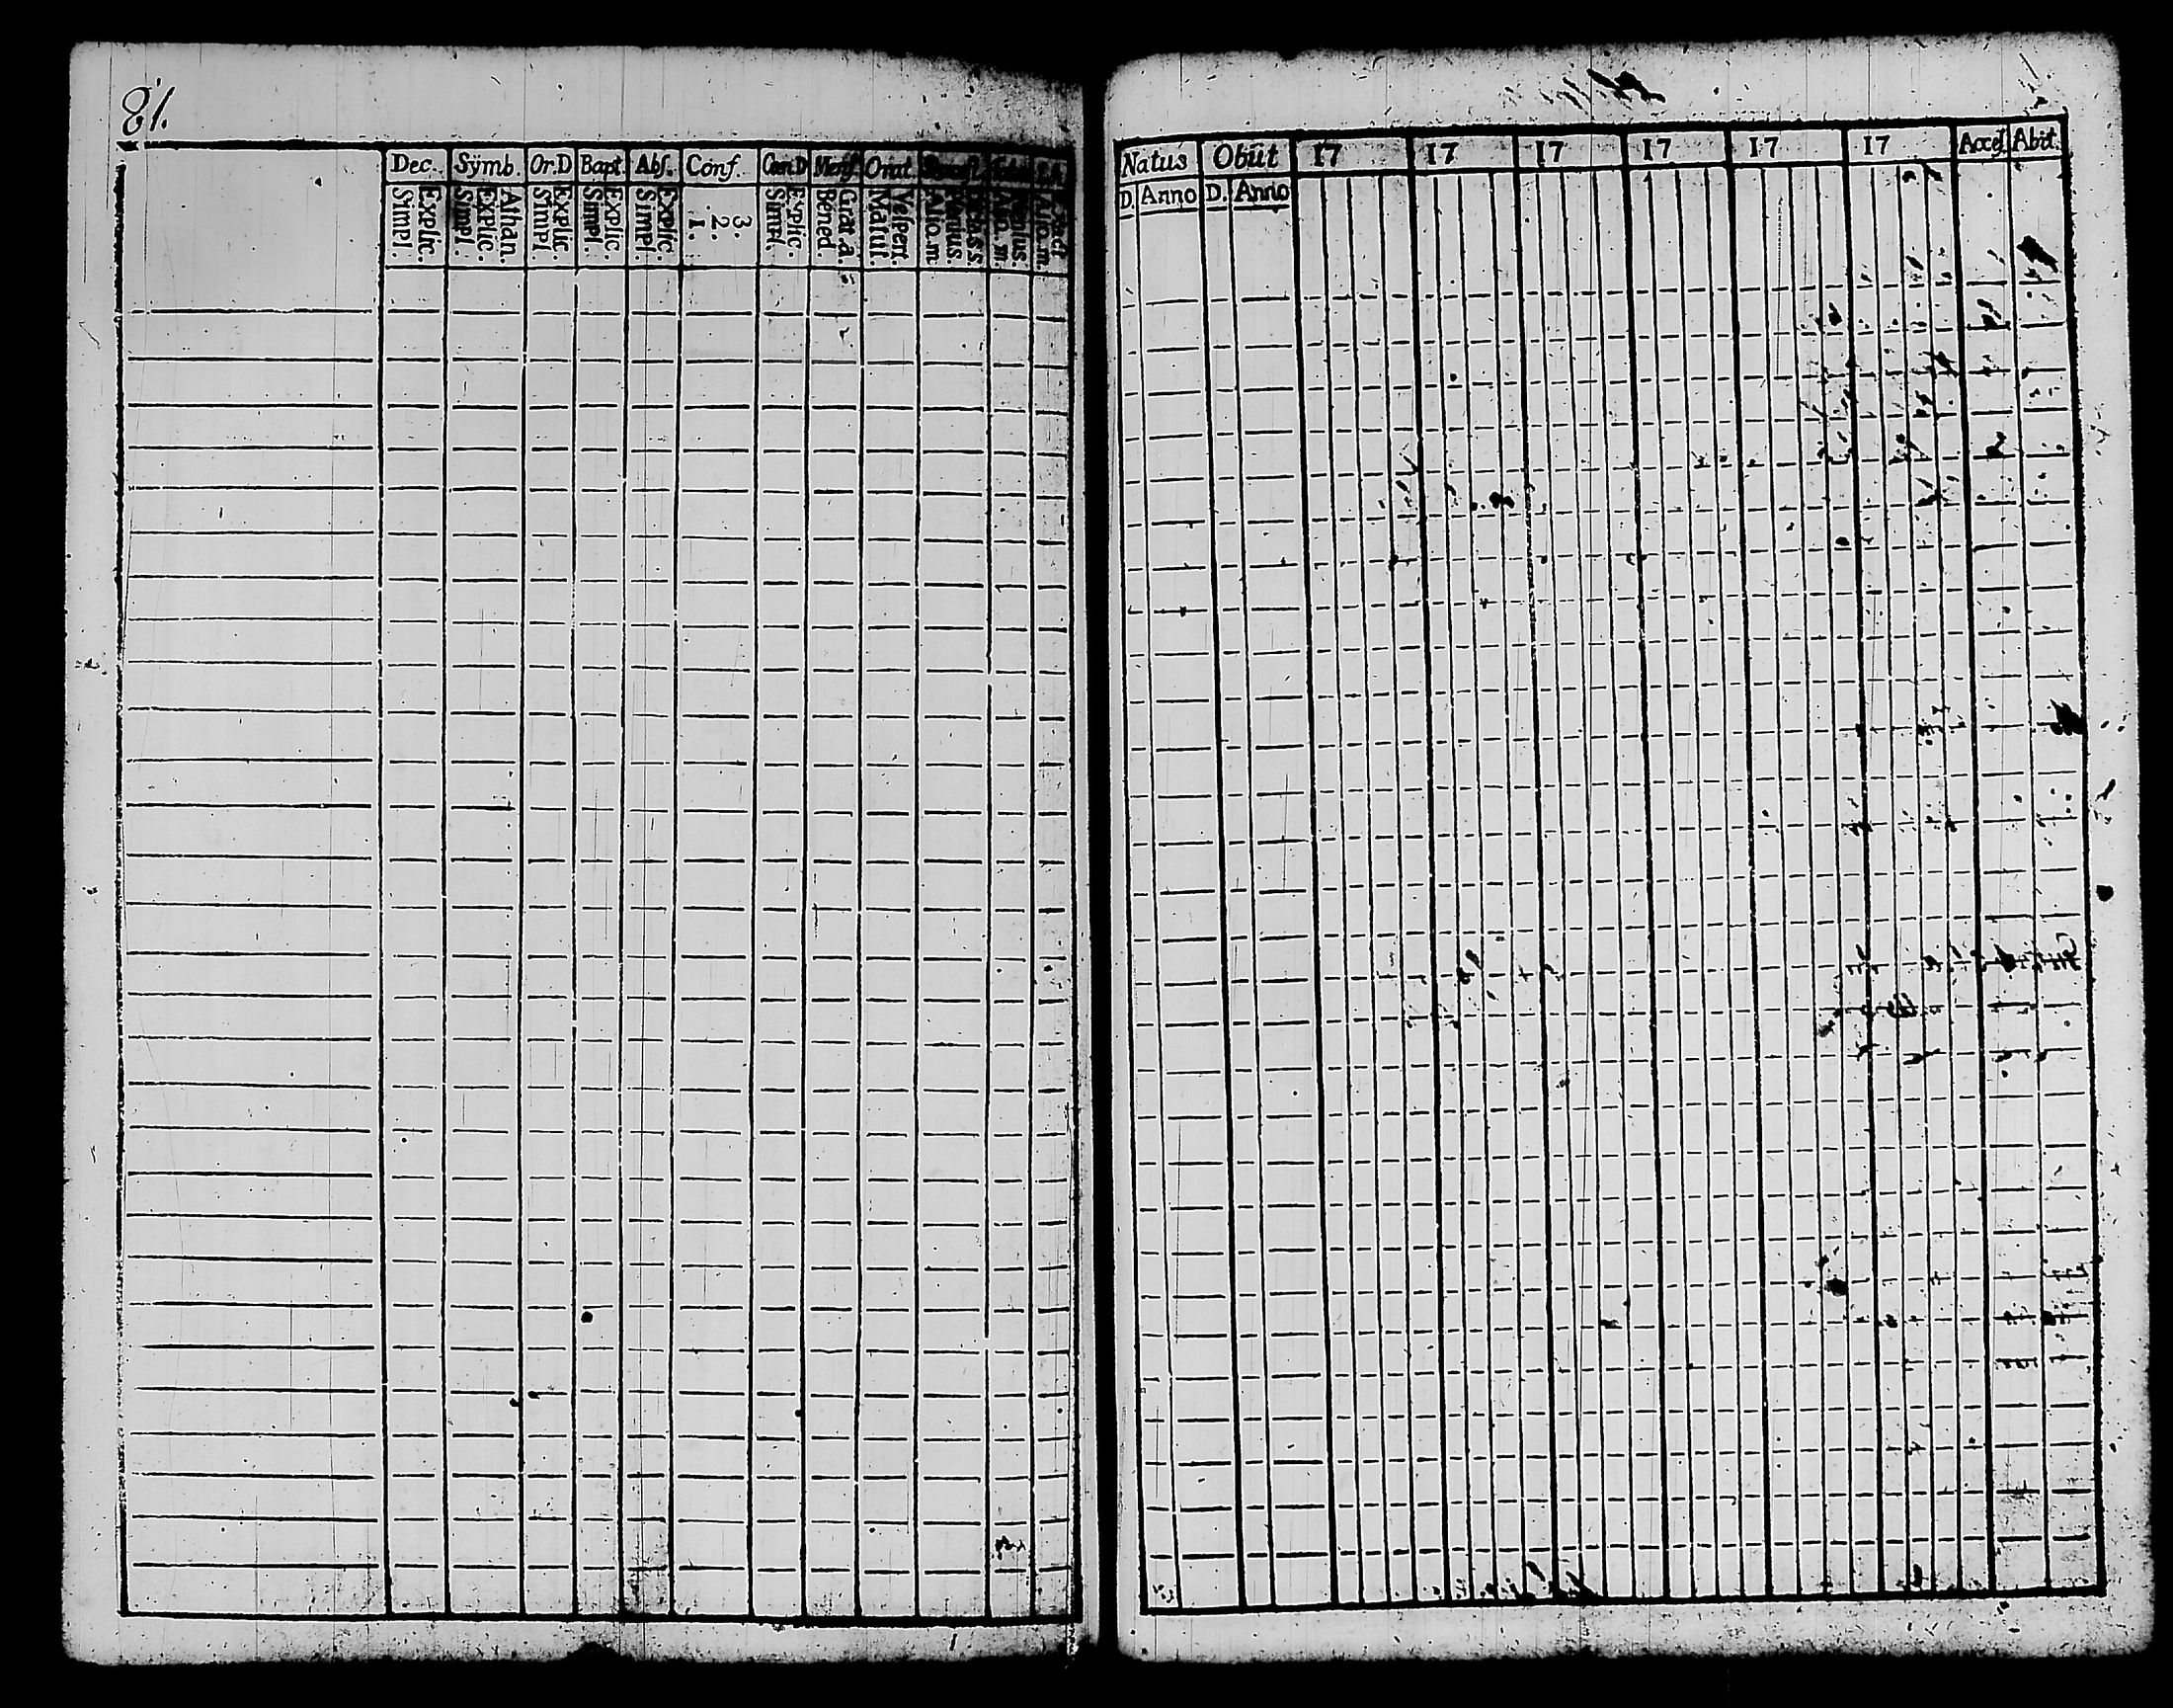 81.
Dec. Sÿmb. Or.D Bapt. Abs. Conf. Cœn.D Mens. Orat.
Explic. Simpl.
Athan. Explic. Simpl.
Explic. Simpl.
Explic. Simpl.
Explic. Simpl.
3. 2. 1.
Explic. Simpl.
Grat. a. Bened.
Vesper. Matut.
Plenius. Alio. m.
Plenius. Alio. m.
Alio. m.
Natus Obiit 17 17 17 17 17 17 Acces. Abit.
D. Anno D. Anno